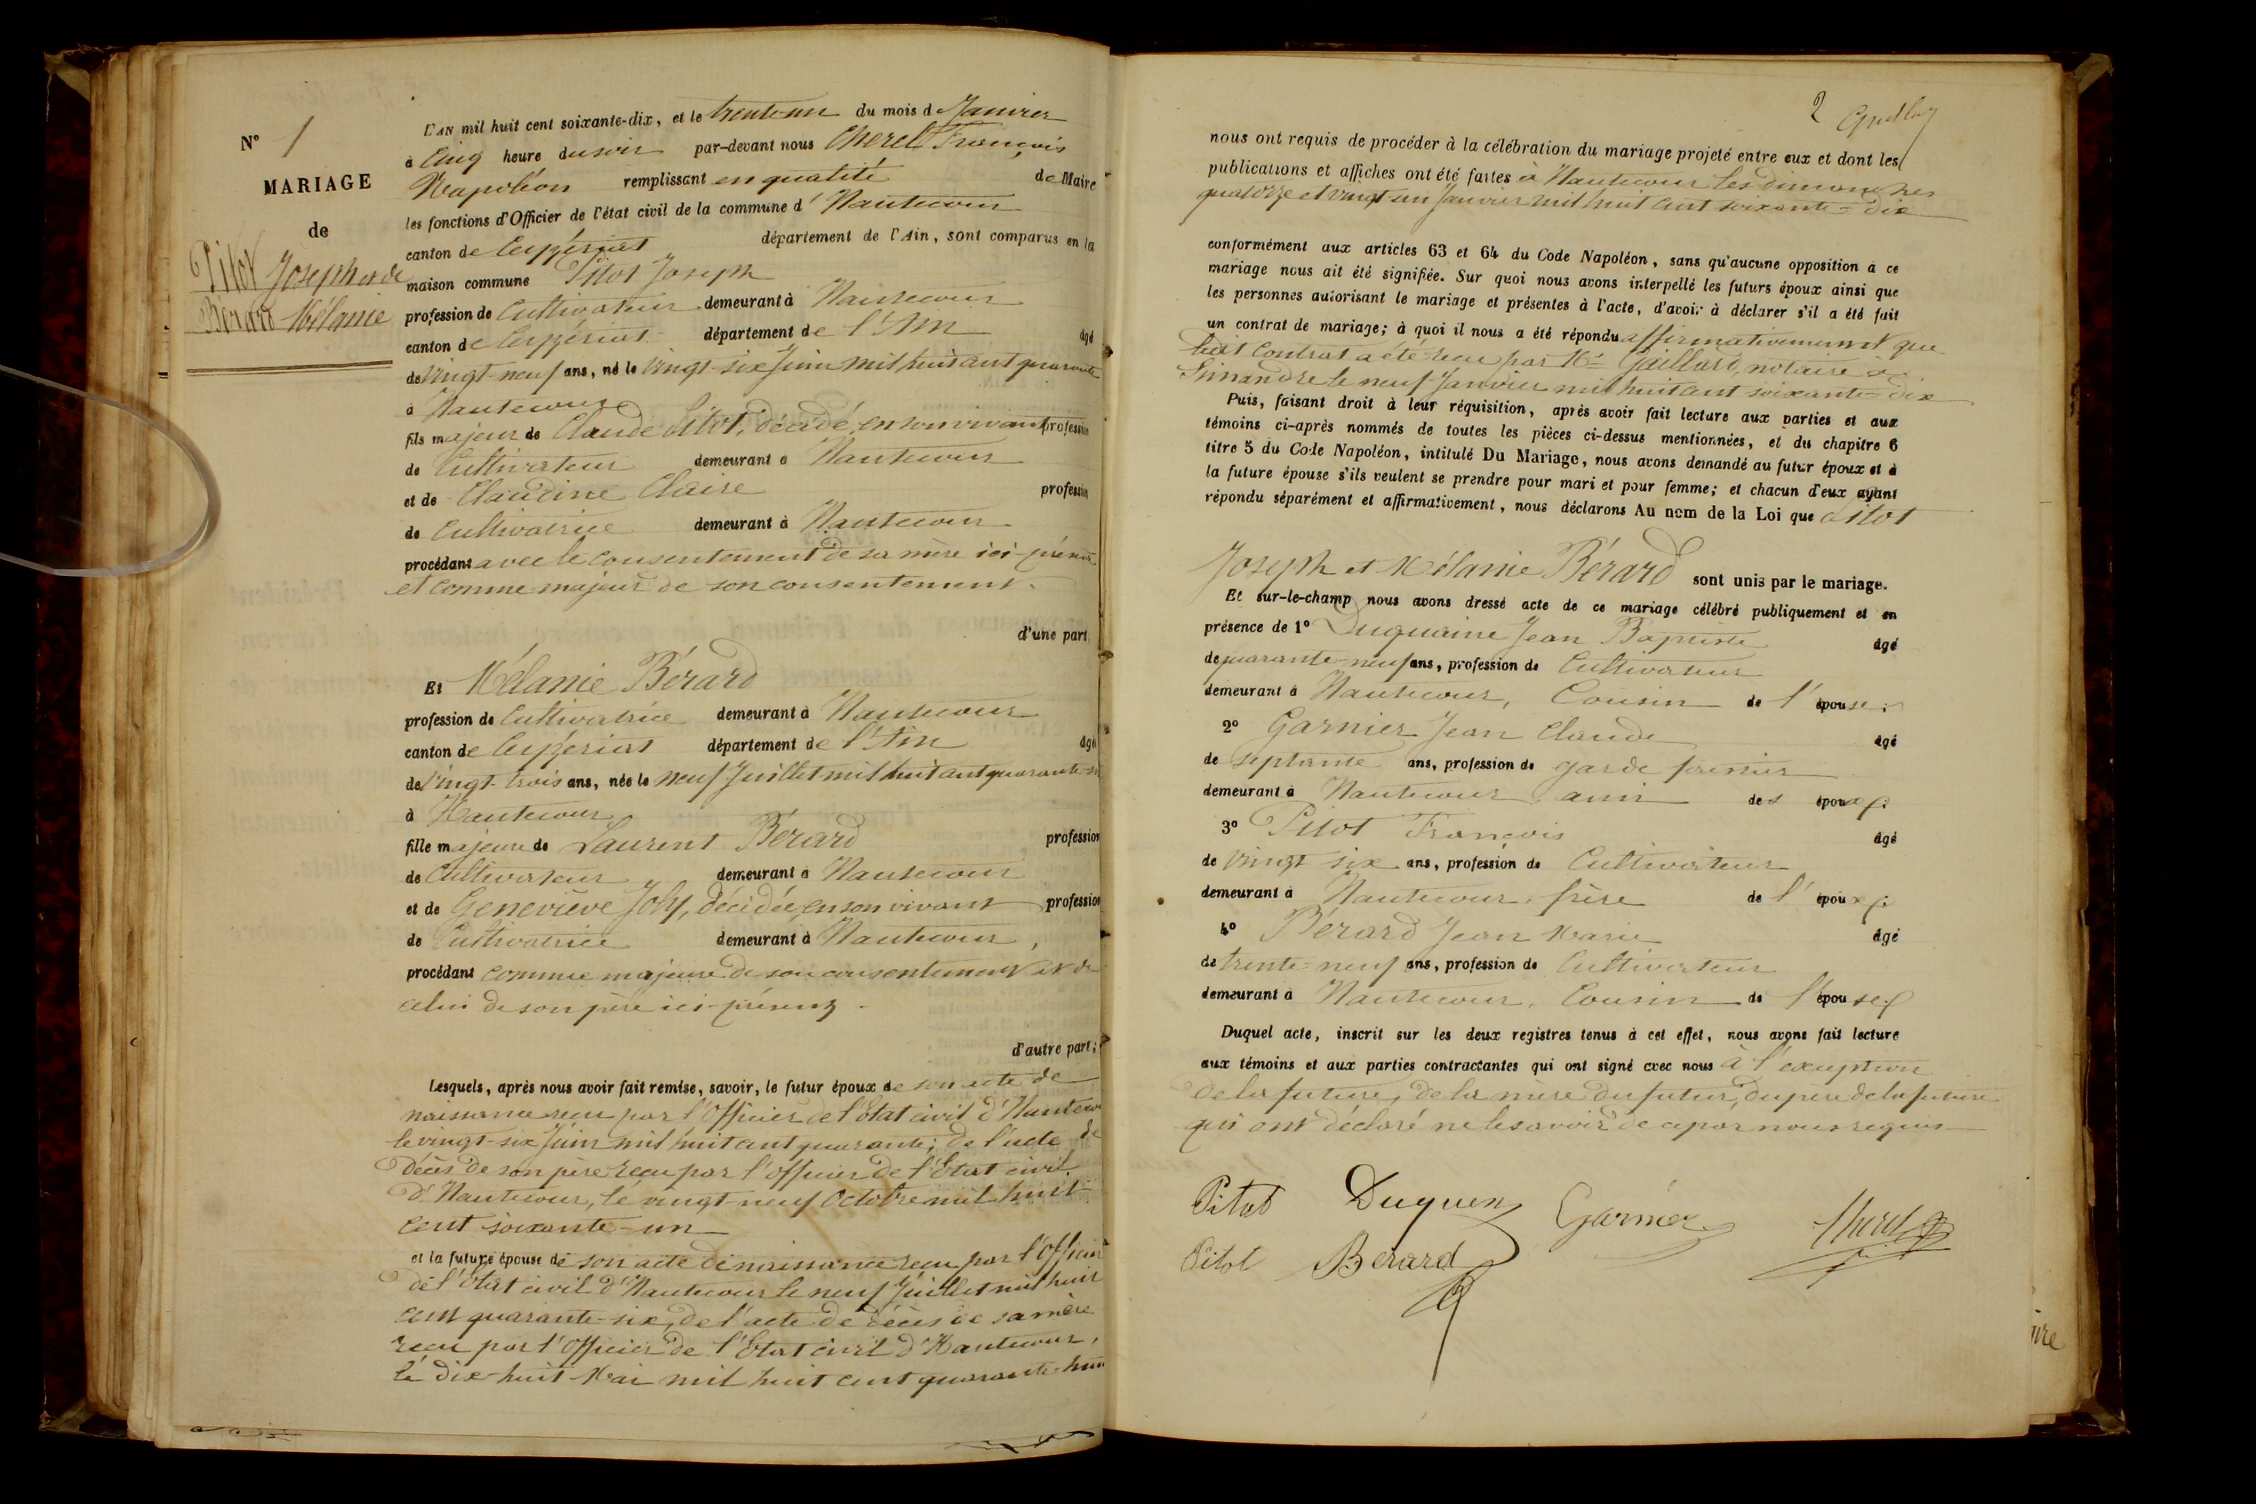 N° 1
MARIAGE
de
Pitot Joseph et de
Bérard Mélanie
L'AN mil huit cent soixante-dix, et le trente-un du mois de Janvier
à Cinq heure du soir par-devant nous Cherel François
Napoléon remplissant en qualité de Maire
les fonctions d'Officier de l'état civil de la commune d'Hautecour
canton de Ceyzériat département de l'Ain, sont comparus en la
maison commune Pitot Joseph
profession de Cultivateur demeurant à Hautecour
canton de Ceyzériat département de l'Ain âgé
de vingt-neuf ans, né le vingt-six Juin mil huit cent quarante
à Hautecour
fils majeur de Claude Pitot, décédé, en son vivant profession
de Cultivateur demeurant à Hautecour
et de Claudine Claire profession
de Cultivatrice demeurant à Hautecour
procédant avec le consentement de sa mère ici-présente
et comme majeur de son consentement.
d'une part
Et Mélanie Bérard
profession de Cultivatrice demeurant à Hautecour
canton de Ceyzériat département de l'Ain âgé
de vingt-trois ans, née le neuf Juillet mil huit cent quarante-six
à Hautecour
fille majeure de Laurent Bérard profession
de Cultivateur demeurant à Hautecour
et de Geneviève Joly, décédée, en son vivant profession
de Cultivatrice demeurant à Hautecour,
procédant comme majeure de son consentement et de
celui de son père ici-présent
d'autre part;
Lesquels, après nous avoir fait remise, savoir, le futur époux de son acte de
naissance reçu par l'Officier de l'Etat civil d'Hautecour
le vingt-six Juin mil huit cent quarante; de l'acte de
décès de son père reçu par l'officier de l'Etat civil
d'Hautecour, le vingt-neuf Octobre mil huit
cent soixante-un
et la future épouse de son acte de naissance reçu par l'Officier
de l'Etat civil d'Hautecour le neuf Juillet mil huit
cent quarante-six, de l'acte de décès de sa mère
reçu par l'Officier de l'Etat civil d'Hautecour,
le dix-huit Mai mil huit cent quarante-huit
2
nous ont requis de procéder à la célébration du mariage projeté entre eux et dont les
publications et affiches ont été faites à Hautecour les dimanches
quatorze et vingt un Janvier mil huit cent soixante-dix
conformément aux articles 63 et 64 du Code Napoléon, sans qu'aucune opposition à ce
mariage nous ait été signifiée. Sur quoi nous avons interpellé les futurs époux ainsi que
les personnes autorisant le mariage et présentes à l'acte, d'avoir à déclarer s'il a été fait
un contrat de mariage; à quoi il nous a été répondu affirmativement que
ledit Contrat a été reçu par Me Gaillard, notaire à
Simandre le neuf Janvier mil huit cent soixante-dix
Puis, faisant droit à leur réquisition, après avoir fait lecture aux parties et aux
témoins ci-après nommés de toutes les pièces ci-dessus mentionnées, et du chapitre 6
titre 5 du Code Napoléon, intitulé Du Mariage, nous avons demandé au futur époux et à
la future épouse s'ils veulent se prendre pour mari et pour femme; et chacun d'eux ayant
répondu séparément et affirmativement, nous déclarons Au nom de la Loi que Pitot
Joseph et Mélanie Bérard sont unis par le mariage.
Et sur-le-champ nous avons dressé acte de ce mariage célébré publiquement et en
présence de 1° Duquaine Jean Baptiste âgé
de quarante-neuf ans, profession de Cultivateur
demeurant à Hautecour, Cousin de l'épouse;
2° Garnier Jean Claude âgé
de septante ans, profession de garde forestier
demeurant à Hautecour, ami des époux;
3° Pitot François âgé
de vingt-six ans, profession de Cultivateur
demeurant à Hautecour, frère de l'époux;
4° Bérard Jean Marie âgé
de trente-neuf ans, profession de Cultivateur
demeurant à Hautecour, Cousin de l'épouse;
Duquel acte, inscrit sur les deux registres tenus à cet effet, nous avons fait lecture
aux témoins et aux parties contractantes qui ont signé avec nous à l'exception
de la future, de la mère du futur, du père de la future
qui ont déclaré ne le savoir de ce par nous requis
Pitot Duquen Garnier Cherel
Pitot Berard